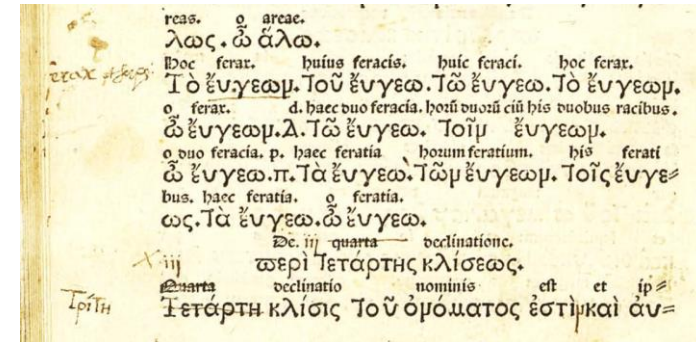 reas. o areae.
λως. ὦ ἅλω.
Hoc ferax. huius feracis. huic feraci. hoc ferax.
Τὸ ἔυγεωμ. Τοῦ ἔυγεω. Τῶ ἔυγεω. Τὸ ἔυγεωμ.
o ferax. d. haec duo feracia. horũ duorũ ciũ his duobus racibus.
ὦ ἔυγεωμ. λ. Τῶ ἔυγεω. Τοῖμ ἔυγεωμ.
o duo feracia. p. haec feratia horum feratium. his ferati
ὦ ἔυγεω. π. Τὰ ἔυγεω. Τῶμ ἔυγεωμ. Τοῖς ἔυγε=
bus. haec feratia. o feratia.
ως. Τὰ ἔυγεω. ὦ ἔυγεω.
De. iij quarta declinatione.
iij περὶ Τετάρτης κλίσεως.
Quarta declinatio nominis est et ip=
Τρίτη Τετάρτη κλίσις Τοῦ ὀμόματος ἐστὶμ καὶ ἀυ=